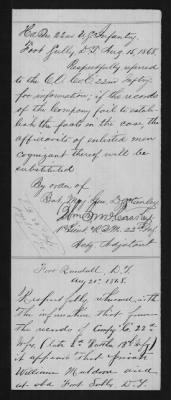 Hd. Qrs. 22nd U.S. Infantry
Fort Sully, D.T. Aug 15, 1868.
Respectfully referred
to the C.O. Co. C 22nd Infty
for information; if the records
of the Company fail to estab-
lish the facts in the case the
affidavits of enlisted men
cognizant thereof will be
substituted
By order of
Bvt. Maj. Gen. D. S. Stanley
1st Lieut. 22nd Inf.
Actg Adjutant
Fort Randall, D.T.
Aug 21st 1868.
Respectfully returned with
the information that from
the records of Comp'y C 22nd
Infy, (late 2nd Battn 13th Infy)
it appears that private
William Muldoon died
at old Fort Sully D.T.